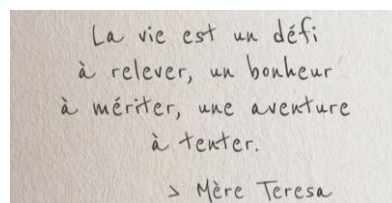 La vie est un défi
à relever, un bonheur
à mériter, une aventure
à tenter.
> Mère Teresa